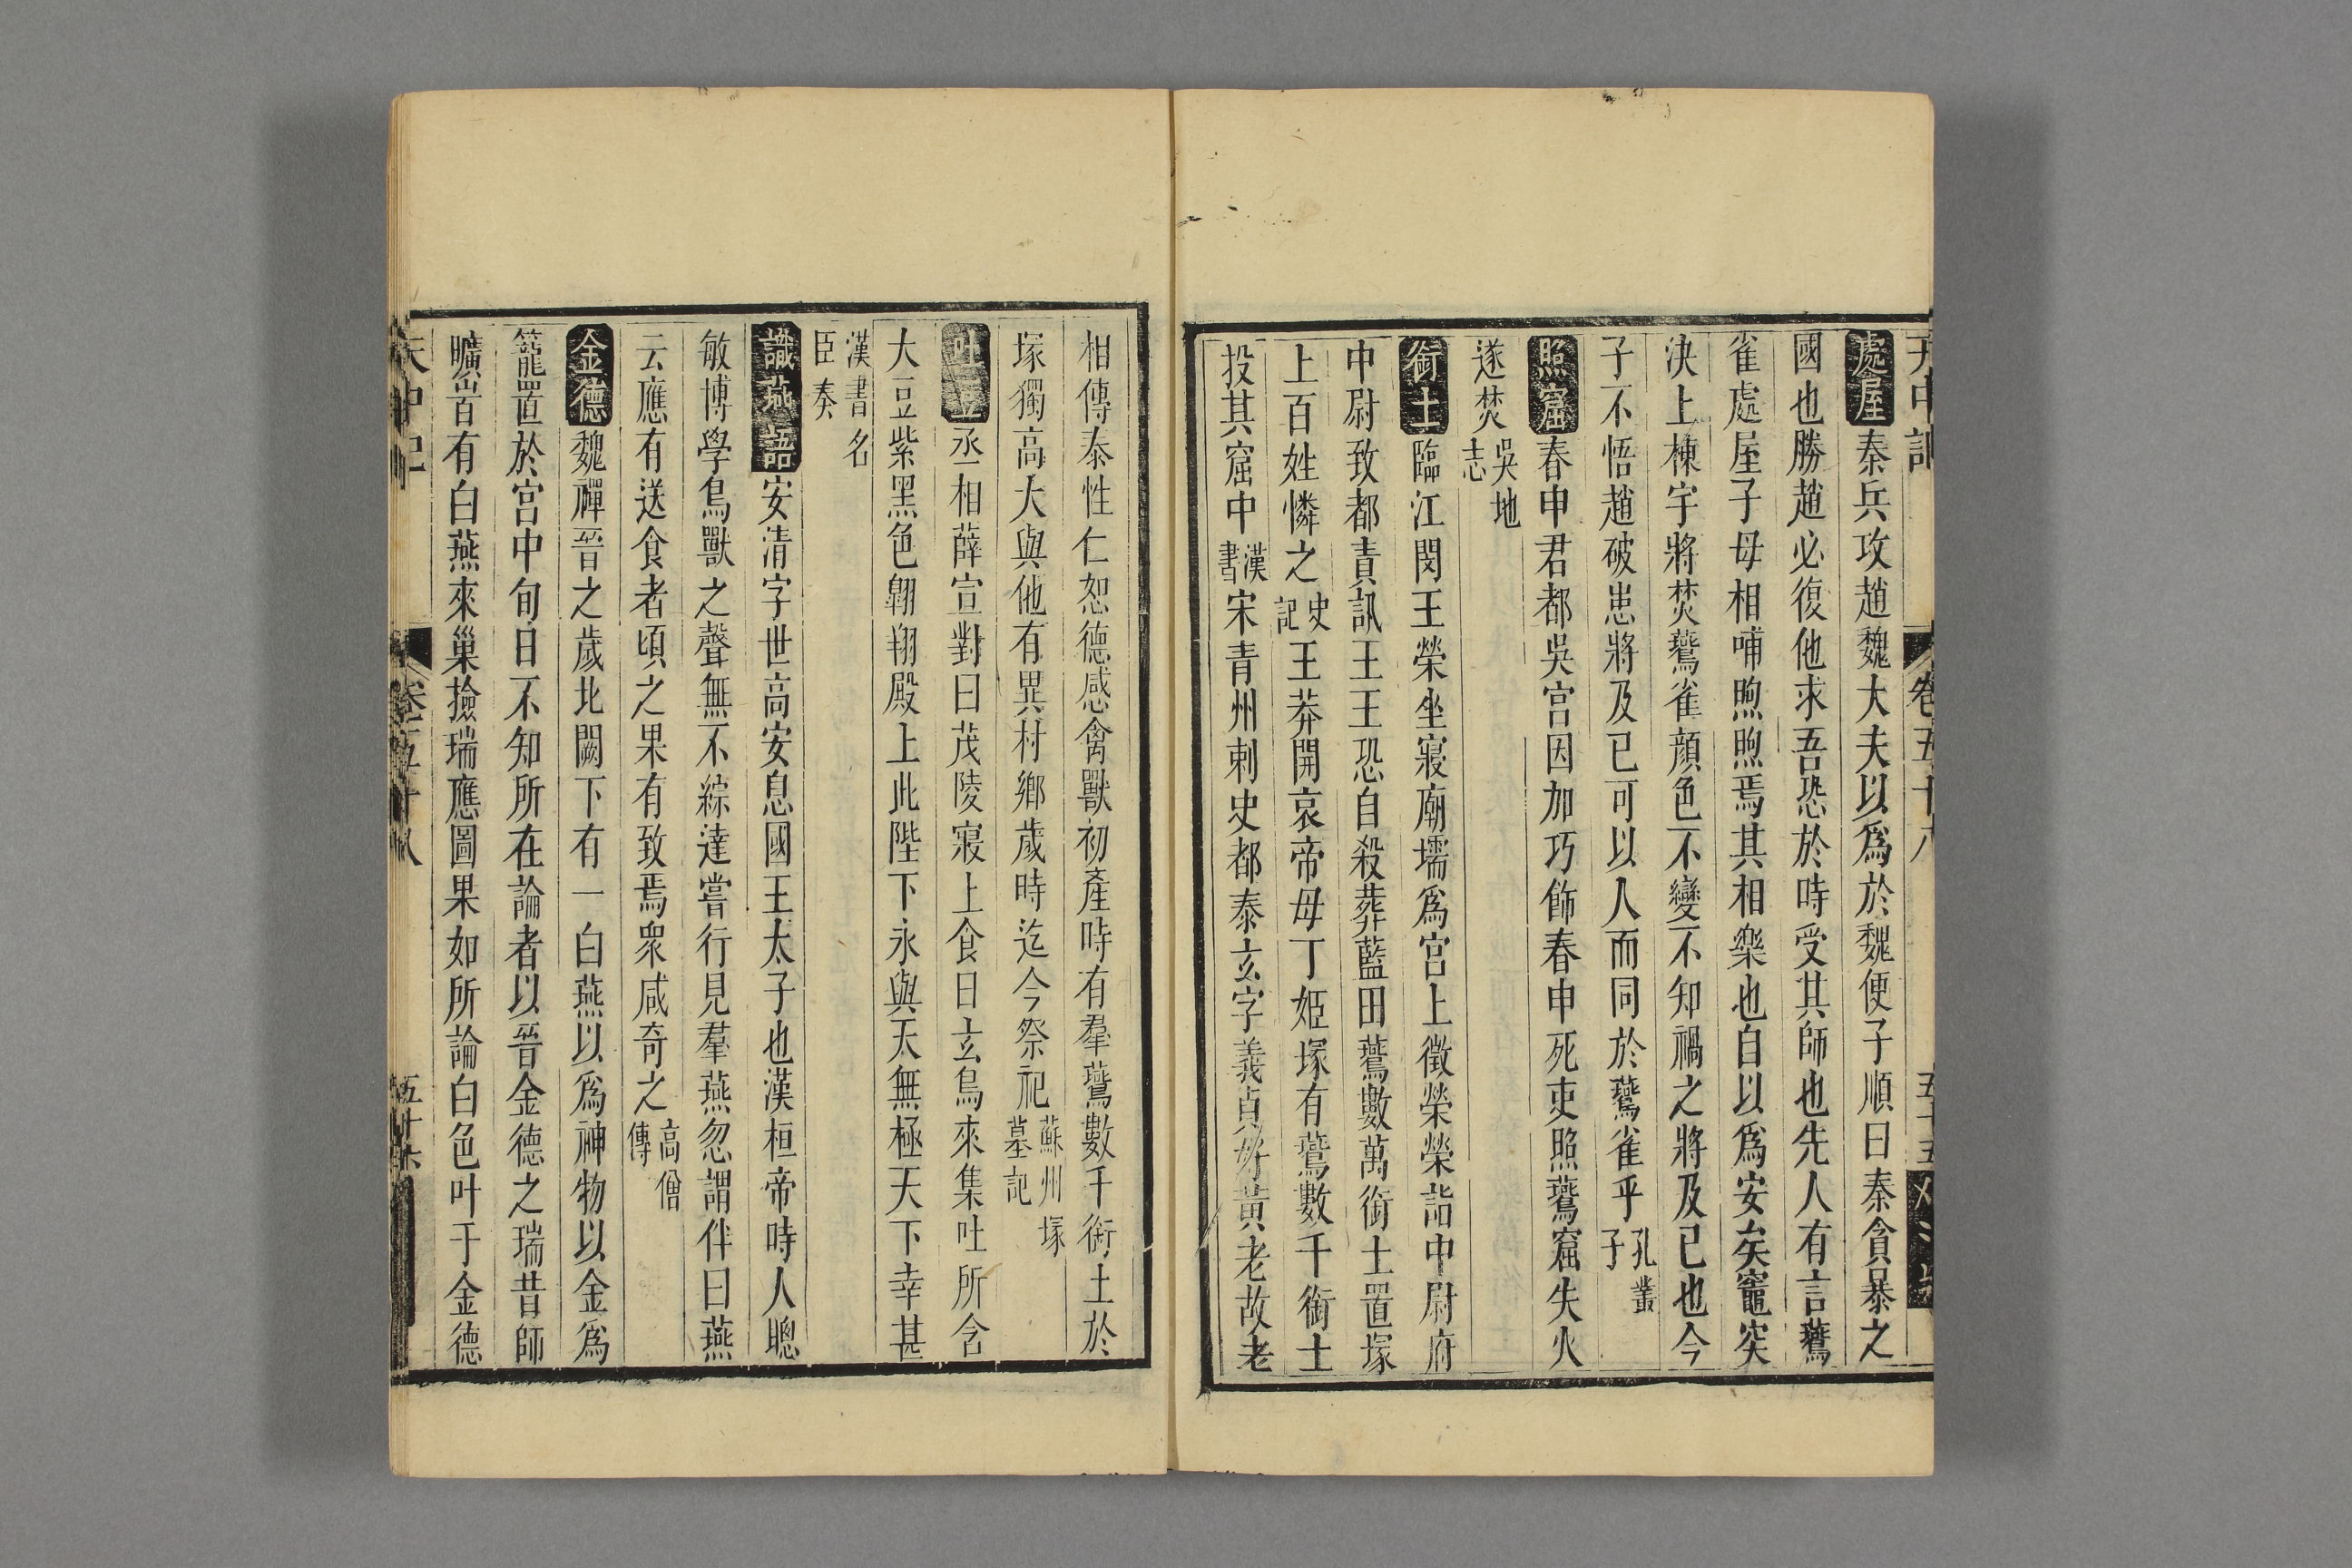 天中記 卷五十八 五十五
處屋秦兵攻趙魏大夫以爲於魏便子順曰秦貪暴之
國也勝趙必復他求吾恐於時受其師也先人有言鷰
雀處屋子母相哺煦煦焉其相樂也自以爲安矣竈突
決上棟宇將焚鷰雀顔色不變不知禍之將及己也今
子不悟趙破患將及已可以人而同於鷰雀乎孔叢子
照窟春申君都吳宮因加巧飾春申死吏照鷰窟失火
遂焚吳地志
銜土臨江閔王榮坐寢廟壖爲宮上徵榮榮詣中尉府
中尉致都責訊王王恐自殺葬藍田鷰數萬銜土置塚
上百姓憐之史記王莽開哀帝母丁姬塚有鷰數千銜土
投其窟中漢書宋青州刺史郗泰玄字義貞好黃老故老
相傳泰性仁恕德感禽獸初產時有羣鷰數千銜土於
塚獨高大與他有異村鄉歲時迄今祭祀蘇州塚墓記
吐豆丞相薛宣對曰茂陵寢上食日玄鳥來集吐所含
大豆紫黑色翱翔殿上此陛下永與天無極天下幸甚
漢書名臣奏
識燕語安清字世高安息國王太子也漢桓帝時人聰
敏博學鳥獸之聲無不綜達嘗行見羣燕忽謂伴曰燕
云應有送食者頃之果有致焉衆咸奇之高僧傳
金德魏禪晉之歲北闕下有一白燕以爲神物以金爲
籠置於宮中旬日不知所在論者以晉金德之瑞昔師
曠皆有白燕來巢撿瑞應圖果如所論白色叶于金德
天中記 卷五十八 五十六